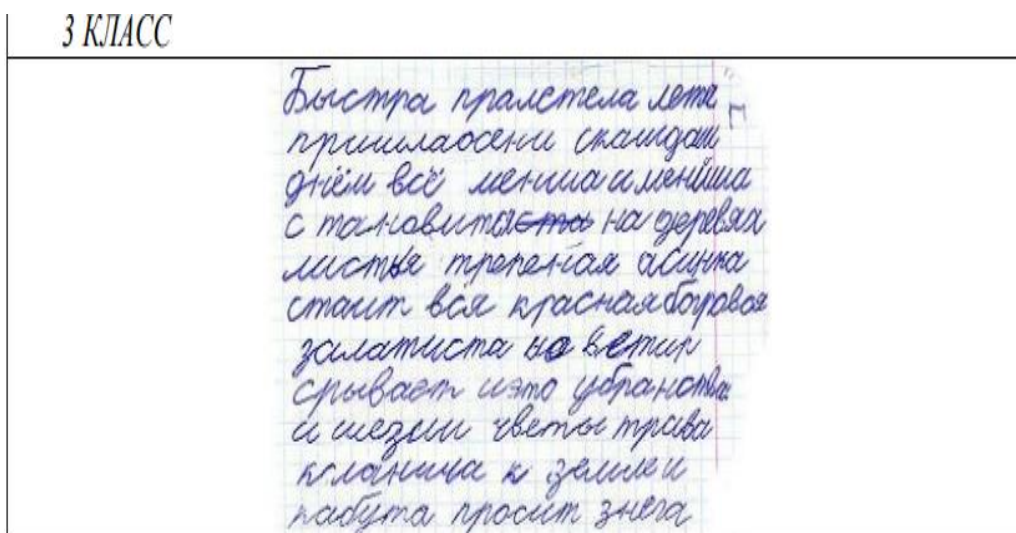 3 КЛАСС
Быстра пралетела лета
пришлаосени скаждам
днём всё менша и менйша
с тановится ста на деревях
листья трепеная асинка
стаит вся красная богровая
залатиста но ветир
срывает иэто убранства
и изезии цветы трава
кланица к земле и
пабута просит знега